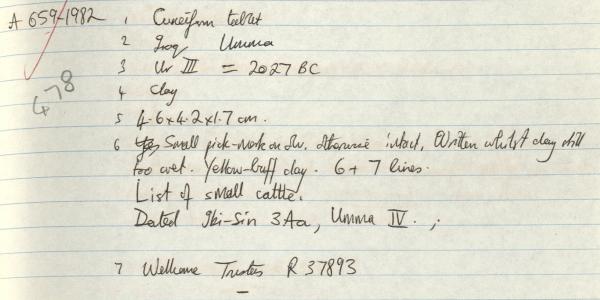 A 659-1982 1 Cuneiform tablet
2 Iraq Umma
3 Ur III = 2027 BC
4 Clay
478
5 4.6 x 4.2 x 1.7 cm.
6 Small pick-mark on Ov. otherwise intact. Written whilst clay still
too wet. Yellow-buff clay. 6 + 7 lines.
List of small cattle.
Dated Ibi-Sin 3 Aa, Umma IV. ;
7 Wellcome Trustees R 37893